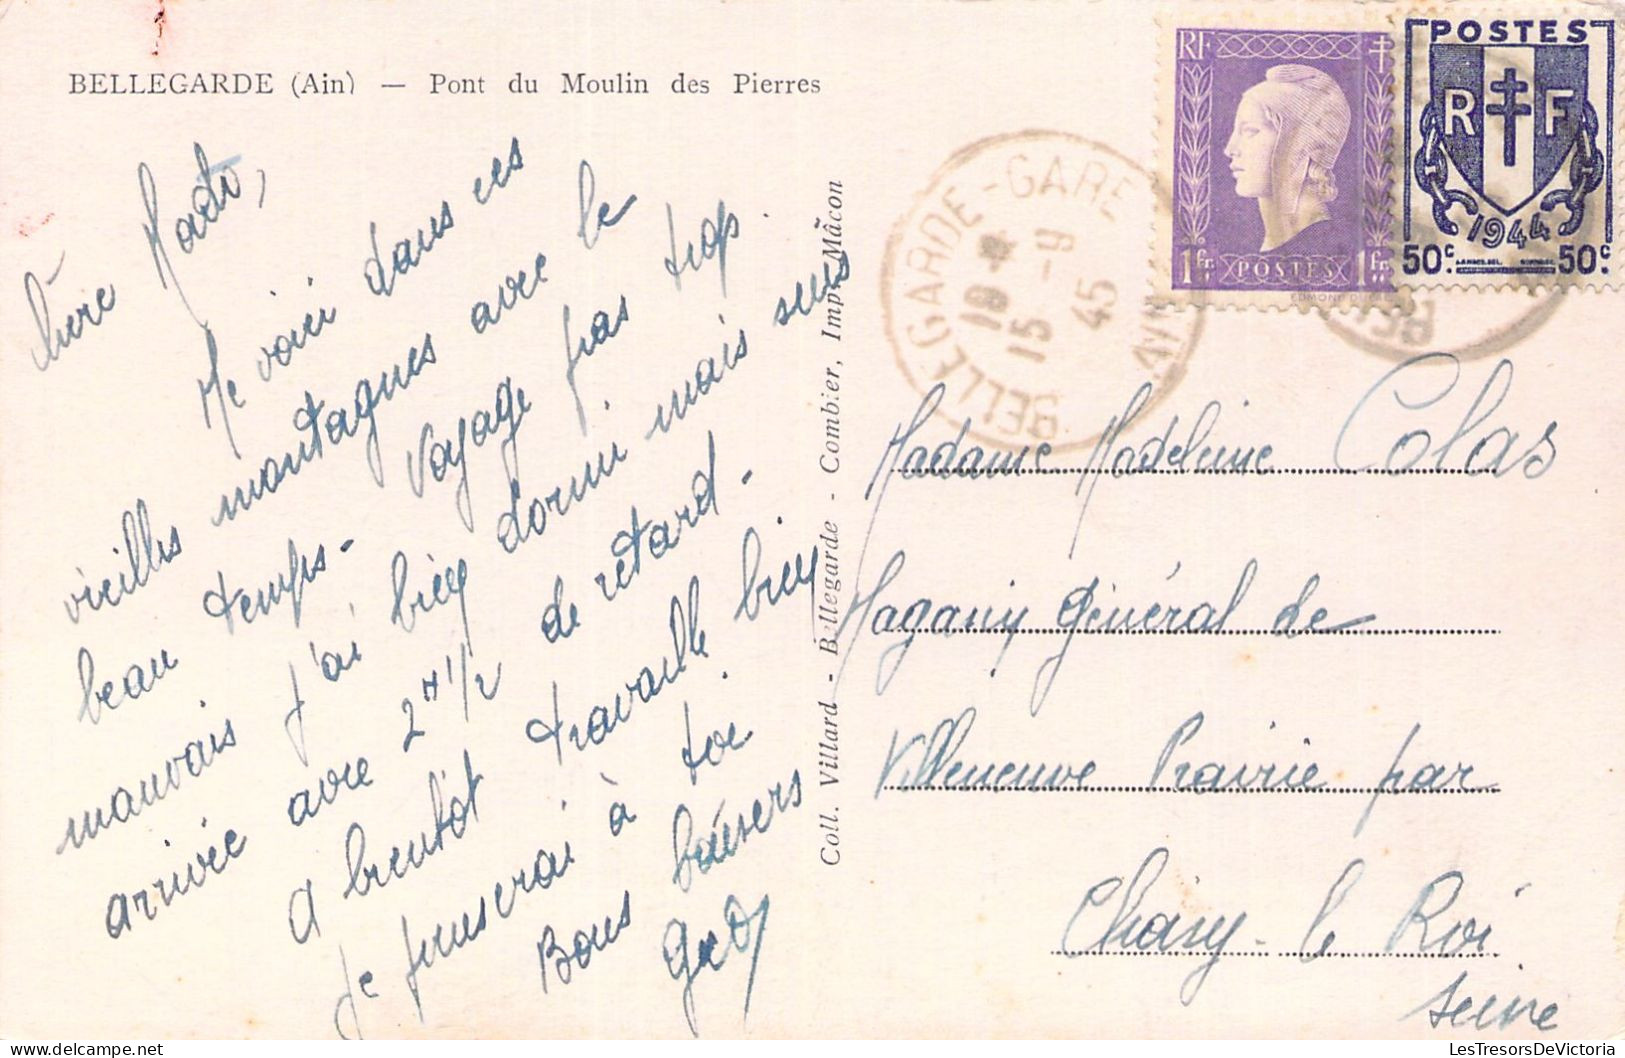 BELLEGARDE (Ain) — Pont du Moulin des Pierres
Me voici dans ces
vieilles montagnes avec le
beau temps - Voyage pas trop
mauvais j'ai bien dormi mais suis
arrivée avec 2 H 1/2 de retard -
A bientôt travaille bien
Je penserai à toi
Bons baisers
Coll. Villard - Bellegarde - Combier, Imp. Mâcon
BELLEGARDE-GARE
18
15 -9
45
AIN
RF
1 fr. POSTES 1 fr.
EDMOND DULAC
POSTES
R F
1944
50c. 50c.
Madame Madeleine Colas
Magasin Général de
Villeneuve Prairie par
Choisy-le Roi
Seine
LesTresorsDeVictoria